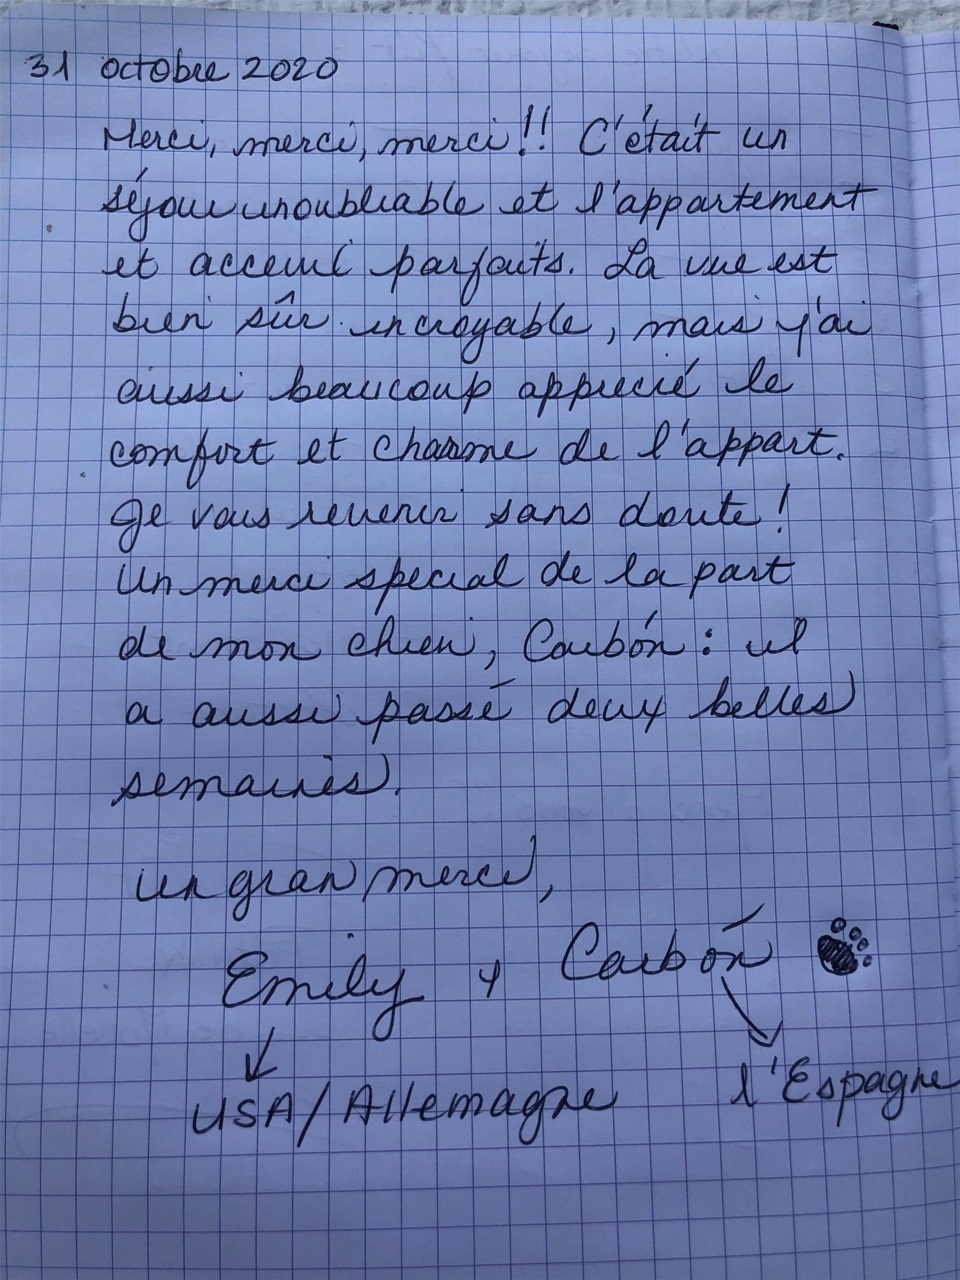 31 octobre 2020
Merci, merci, merci!! C'était un
séjour inoubliable et l'appartement
et acceuil parfaits. La vue est
bien sûr incroyable, mais j'ai
aussi beaucoup apprecié le
comfort et charme de l'appart.
Je vous revenir sans doute!
Un merci special de la part
de mon chien, Carbón: il
a aussi passé deux belles
semaines.
un gran merci,
Emily y Carbón
USA/Allemagne l'Espagne